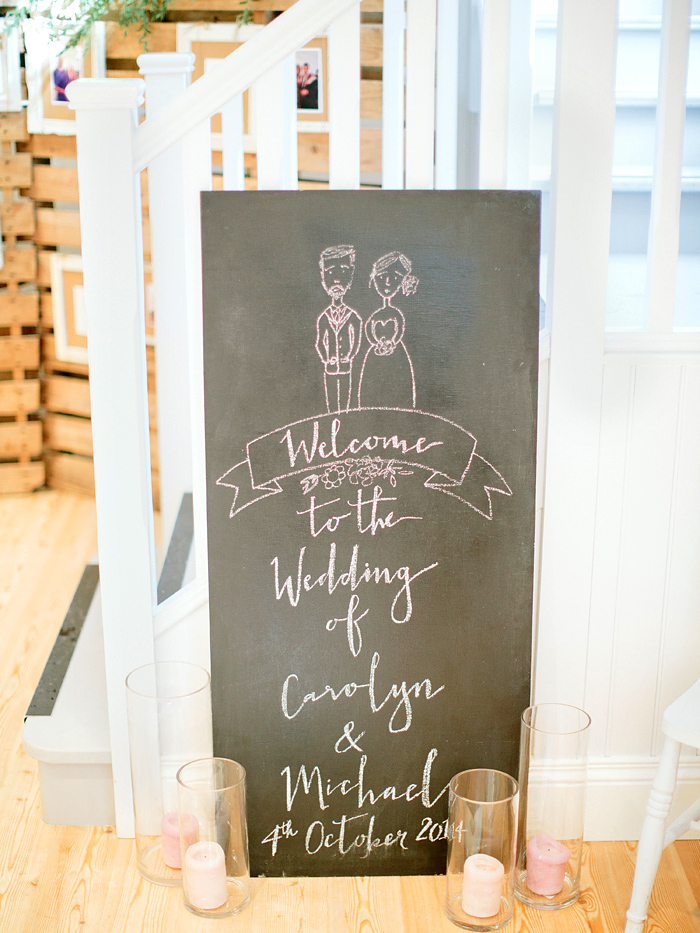 Welcome
to the
Wedding
of
Carolyn
&
Michael
4th October 2014